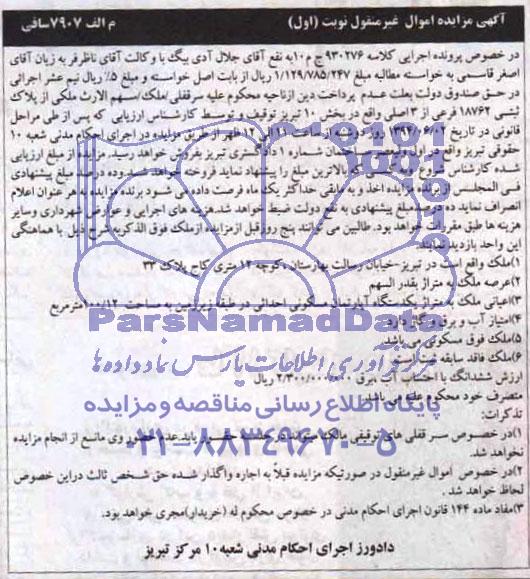 آگهی مزایده اموال غیرمنقول نوبت (اول) م الف ۷۹۰۷سافی
در خصوص پرونده اجرایی کلاسه ۹۳۰۲۷۶ ج م ۱۰به نفع آقای جلال آدی بیگ با وکالت آقای ناظرفر به زیان آقای
اصغر قاسمی به خواسته مطالبه مبلغ ۱/۱۲۹/۷۸۵/۲۴۷ ریال از بابت اصل خواسته و مبلغ ۵٪ ریال نیم عشر اجرائی
در حق صندوق دولت بعلت عدم پرداخت دین ازناحیه محکوم علیه سرقفلی/ملک/سهم الارث ملکی از پلاک
ثبتی ۱۸۷۶۲ فرعی از ۳ اصلی واقع در بخش ۱۰ تبریز توقیف و توسط کارشناس ارزیابی که پس از طی مراحل
قانونی در تاریخ ۱۳۹۴/۰۶/۰۲ روز دوشنبه از ساعت ۱۱ الی ۱۲ ظهر از طریق مزایده در اجرای احکام مدنی شعبه ۱۰
حقوقی تبریز واقع در ساختمان شماره ۱ دادگستری تبریز بفروش خواهد رسید. مزایده از مبلغ ارزیابی
شده کارشناس شروع و به کسی که بالاترین مبلغ را پیشنهاد نماید فروخته خواهد شد. ده درصد مبلغ پیشنهادی
فی المجلس از برنده مزایده اخذ و به مابقی حداکثر یک ماه فرصت داده می شود برنده مزایده به هر عنوان اعلام
انصراف نماید ده درصد مبلغ پیشنهادی به نفع دولت ضبط خواهد شد. هزینه های اجرایی و عوارض شهرداری وسایر
هزینه ها طبق مقررات خواهد بود. طالبین می توانند پنج روز قبل ازمزایده ازملک فوق الذکر به شرح ذیل با هماهنگی
این واحد بازدید نمایند.
۱)ملک واقع است در تبریز-خیابان رسالت بهارستان ،کوچه ۱۲ متری کاج پلاک ۳۲
۲)عرصه ملک به متراژ بقدر السهم
۳)اعیانی ملک به متراژ یکدستگاه آپارتمان مسکونی احداثی در طبقه زیرزمین به مساحت ۱۰۰/۱۲مترمربع
۴)امتیاز آب و برق و گاز دارد.
۵)ملک فوق مسکونی می باشد.
۶)ملک فاقد سابقه ثبتی است
ارزش ششدانگ با احتساب آب ،برق ۲/۳۰۰/۰۰۰/۰۰۰ ریال
متصرف خود محکوم علیه می باشد.
تذکرات:
۱)در خصوص سرقفلی های توقیفی مالک میتواند در جلسه حضور یابد عدم حضور وی مانع از انجام مزایده
نخواهد شد.
۲)در خصوص اموال غیرمنقول در صورتیکه مزایده قبلاً به اجاره واگذار شده حق شخص ثالث دراین خصوص
لحاظ خواهد شد .
۳)مفاد ماده ۱۴۴ قانون اجرای احکام مدنی در خصوص محکوم له (خریدار)مجری خواهد بود.
دادورز اجرای احکام مدنی شعبه ۱۰ مرکز تبریز
ParsNamadData
مرکز فرآوری اطلاعات پارس نماد داده ها
پایگاه اطلاع رسانی مناقصه و مزایده
۰۲۱-۸۸۳۴۹۶۷۰-۵